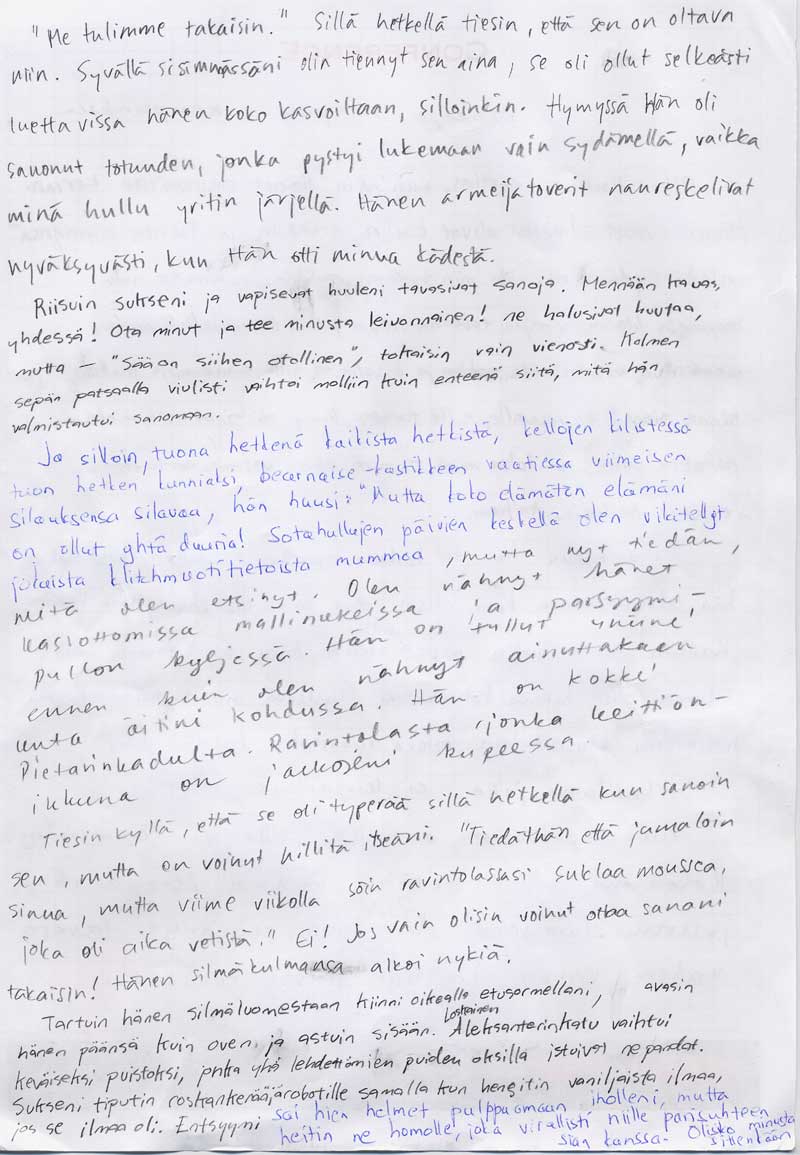 "Me tulimme takaisin." Sillä hetkellä tiesin, että sen on oltava
niin. Syvällä sisimmässäni olin tiennyt sen aina, se oli ollut selkeästi
luettavissa hänen koko kasvoiltaan, silloinkin. Hymyssä Hän oli
sanonut totuuden, jonka pystyi lukemaan vain sydämellä, vaikka
minä hullu yritin järjellä. Hänen armeijatoverit naureskelivat
hyväksyvästi, kun Hän otti minua kädestä.
Riisuin sukseni ja vapisevat huuleni tavasivat sanoja. Mennään
yhdessä! Ota minut ja tee minusta leivonnainen! ne halusivat huutaa,
mutta – "Sää on siihen otollinen", tokaisin vain vienosti. Kolmen
sepän patsaalla viulisti vaihtoi molliin kuin enteenä siitä, mitä hän
valmistautui sanomaan.
Ja silloin, tuona hetkenä kaikista hetkistä, kellojen kilistessä
tuon hetken kunniaksi, bearnaise-kastikkeen vaatiessa viimeisen
silauksensa silavaa, hän huusi: "Mutta koko elämäni
on ollut yhtä duuria! Sotahullujen päivien keskellä olen vikitellyt
jokaista muotitietoista mummoa, mutta nyt tiedän,
mitä olen etsinyt. Olen nähnyt hänet
kasvottomissa mallinukeissa ja parfyymi-
pullon kyljessä. Hän on tullut uniini
ennen kuin olen nähnyt ainuttakaan
unta äitini kohdussa. Hän on kokki
Pietarinkadulta. Ravintolasta jonka keittiön-
ikkuna on jalkojeni kupeessa.
Tiesin kyllä, että se oli typerää sillä hetkellä kun sanoin
sen, mutta en voinut hillitä itseäni. "Tiedäthän että jumaloin
sinua, mutta viime viikolla söin ravintolassasi suklaa moussea,
joka oli aika vetistä." Ei! Jos vain olisin voinut ottaa sanani
takaisin! Hänen silmäkulmansa alkoi nykiä.
Tartuin hänen silmäluomestaan kiinni oikealla etusormellani, avasin
hänen päänsä kuin oven ja astuin sisään. Loskainen Aleksanterinkatu vaihtui
keväiseksi puistoksi, jonka yhä lehdettömien puiden oksilla istuivat
Sukseni tiputin roskankerääjärobotille samalla kun hengitin vaniljaista ilmaa,
jos se ilmaa oli. Entsyymi sai hien helmet pulppuamaan iholleni, mutta
heitin ne homolle, joka virallisti niille parisuhteen
sian kanssa. Olisko minusta
sittenkään